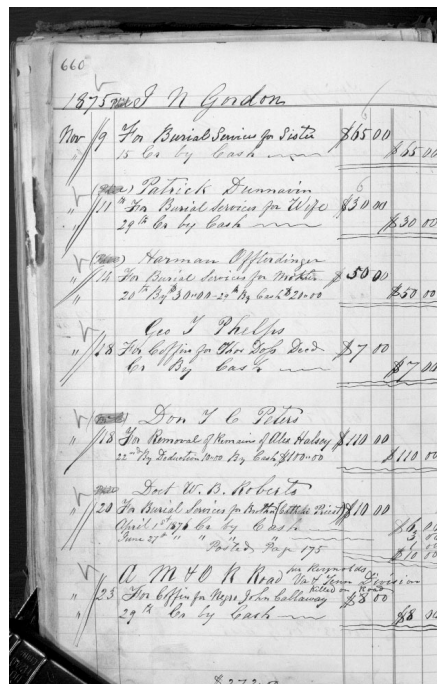 660
1875 J N Gordon
Nov 9 For Burial Services for Sister $65 00
" 15 Cr by Cash $65 00
Patrick Dunnavin
" 11th For Burial Services for Wife $30 00
" 29th Cr by Cash $30 00
Harman Offlerdinger
" 14 For Burial Services for Mother $50 00
" 20th By $30=00 - 29th By Cash $20=00 $50 00
Geo T Phelps
" 18 For Coffin for Thos Doss Decd $7 00
Cr By Cash $7 00
Don T C Peters
" 18 For Removal of Remains of Alex Halsey $110 00
22nd By Deduction 10=00 By Cash $100=00 $110 00
Doct W. B. Roberts
" 20 For Burial Services for Brother (Catholic Priest) $10 00
April 1st 1876 Cr by Cash $6 00
June 27th " " " 3 00
Posted Page 175 $10 00
A M & O R Road per Reynolds Va & Tenn Division
" 23 For Coffin for Negro John Callaway killed on Road $8 00
29th Cr by Cash $8 00